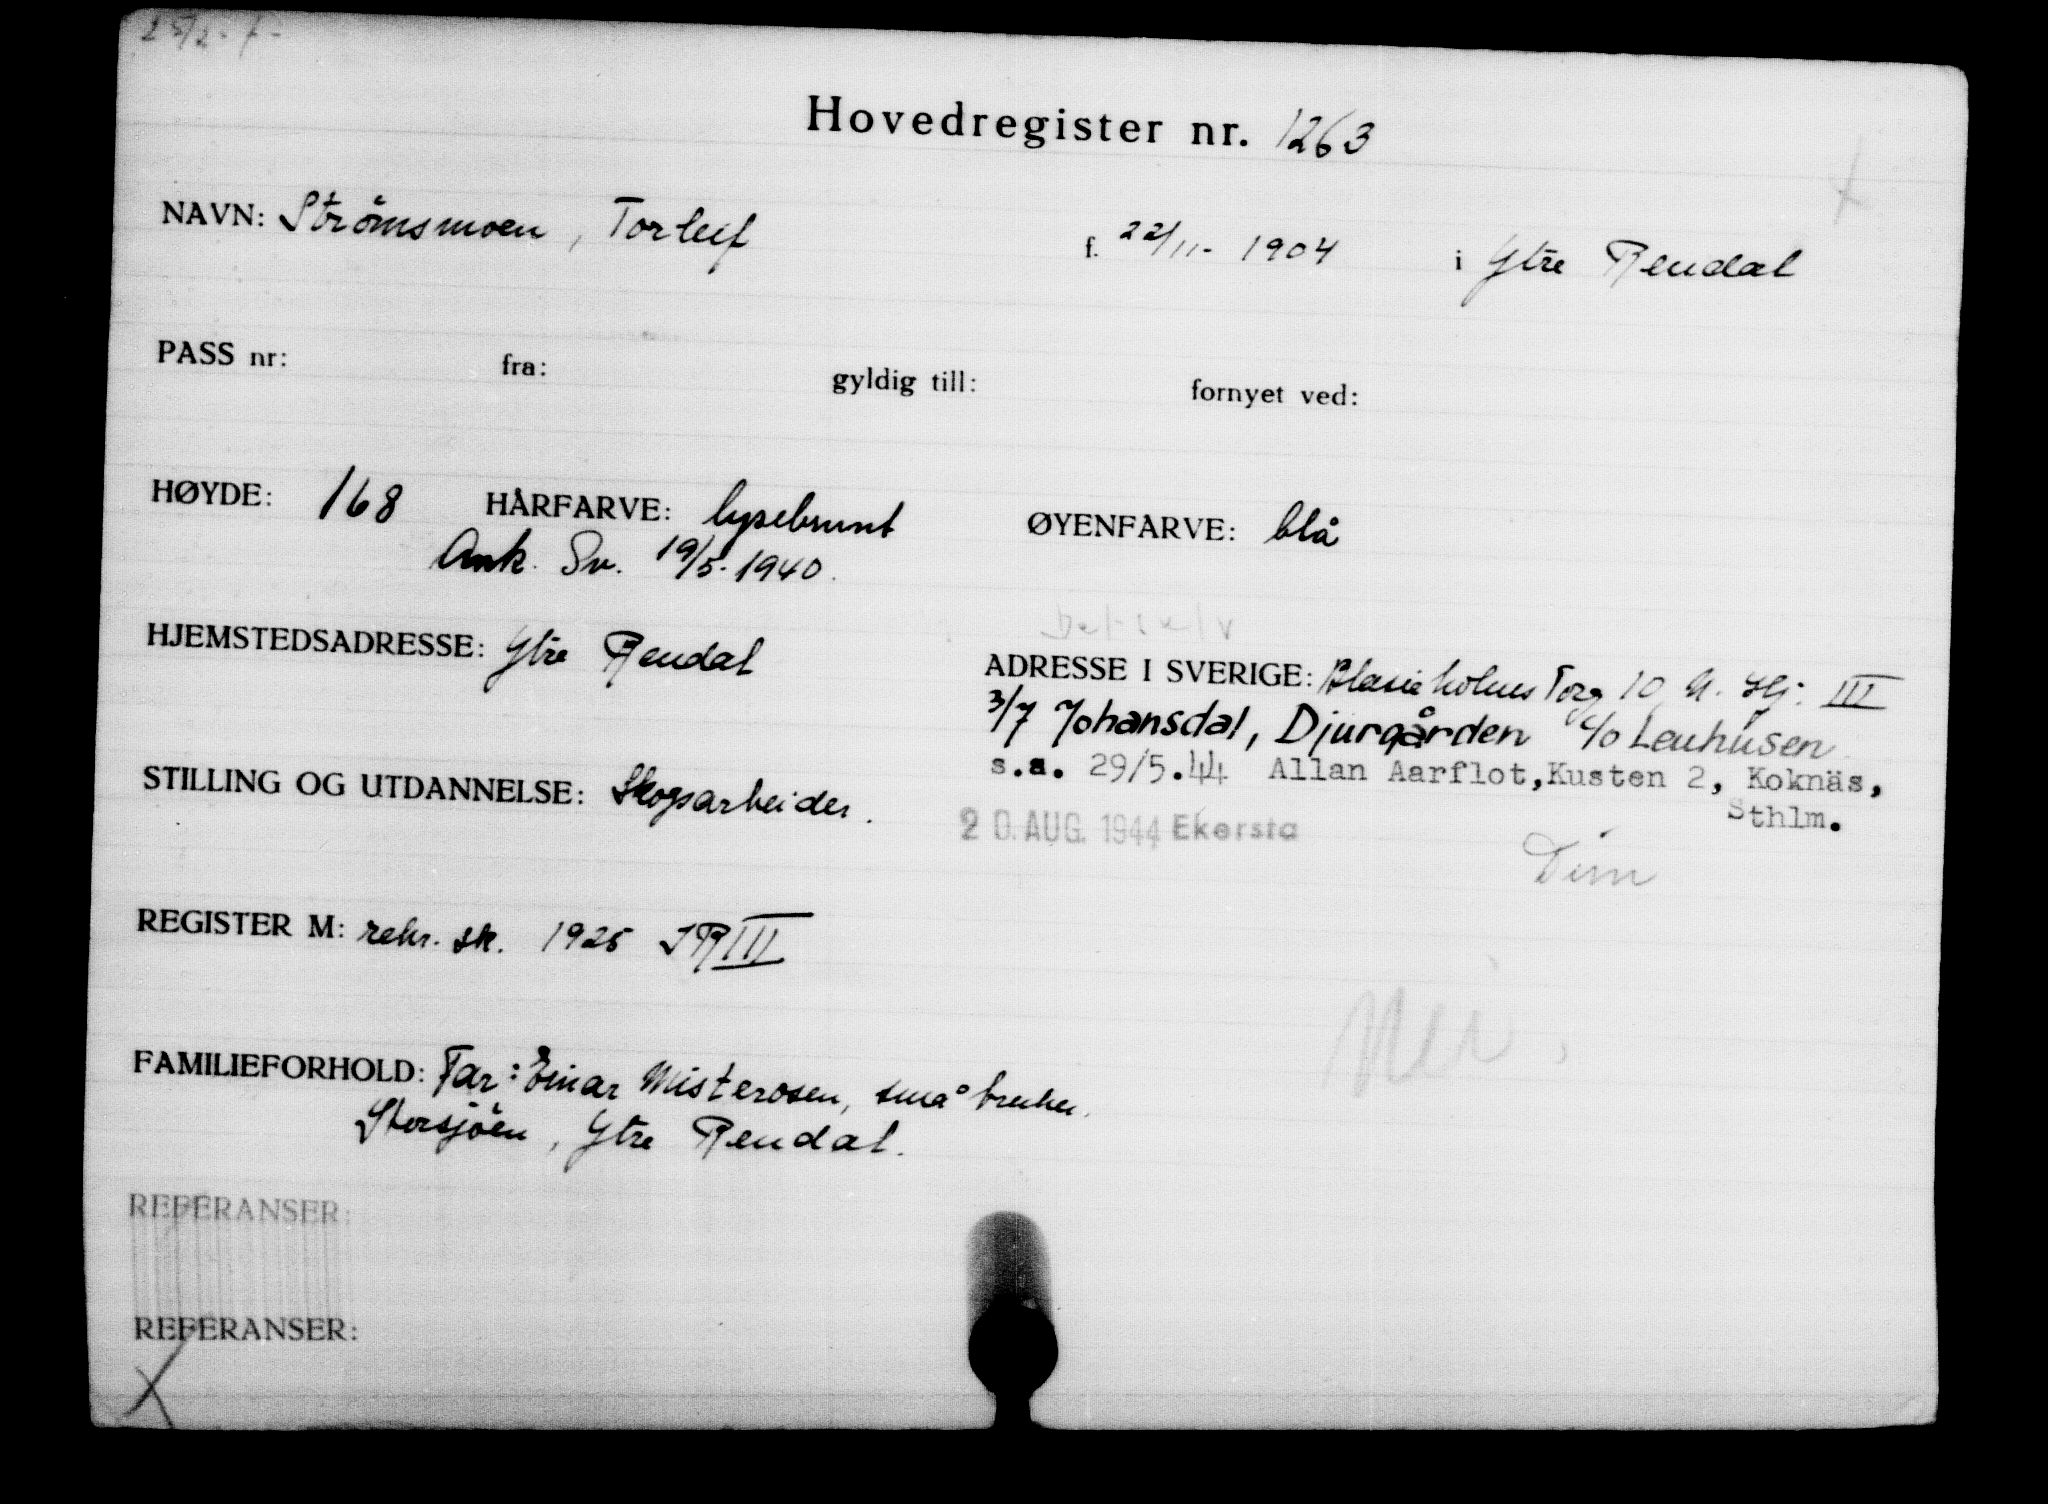 25/2-
Hovedregister nr. 1263
NAVN: Strömsmoen, Torleif f. 22/11- 1904 i Ytre Rendal
PASS nr: fra: gyldig till: fornyet ved:
HØYDE: 168 HÅRFARVE: lysebrunt ØYENFARVE: blå
Ank. Sv. 19/5-1940.
HJEMSTEDSADRESSE: Ytre Rendal
ADRESSE I SVERIGE: Blasieholms Torg 10 III
3/7 Johansdal, Djurgården c/o Leuhusen
s.a. 29/5.44 Allan Aarflot, Kusten 2, Koknäs,
Sthlm.
STILLING OG UTDANNELSE: Skogsarbeider.
20. AUG. 1944 Ekersta
Dim
REGISTER M: rekr. sk. 1925 IR III
FAMILIEFORHOLD: Far: Einar Misterosen, småbruker.
Storsjöen, Ytre Rendal.
REFERANSER:
REFERANSER: